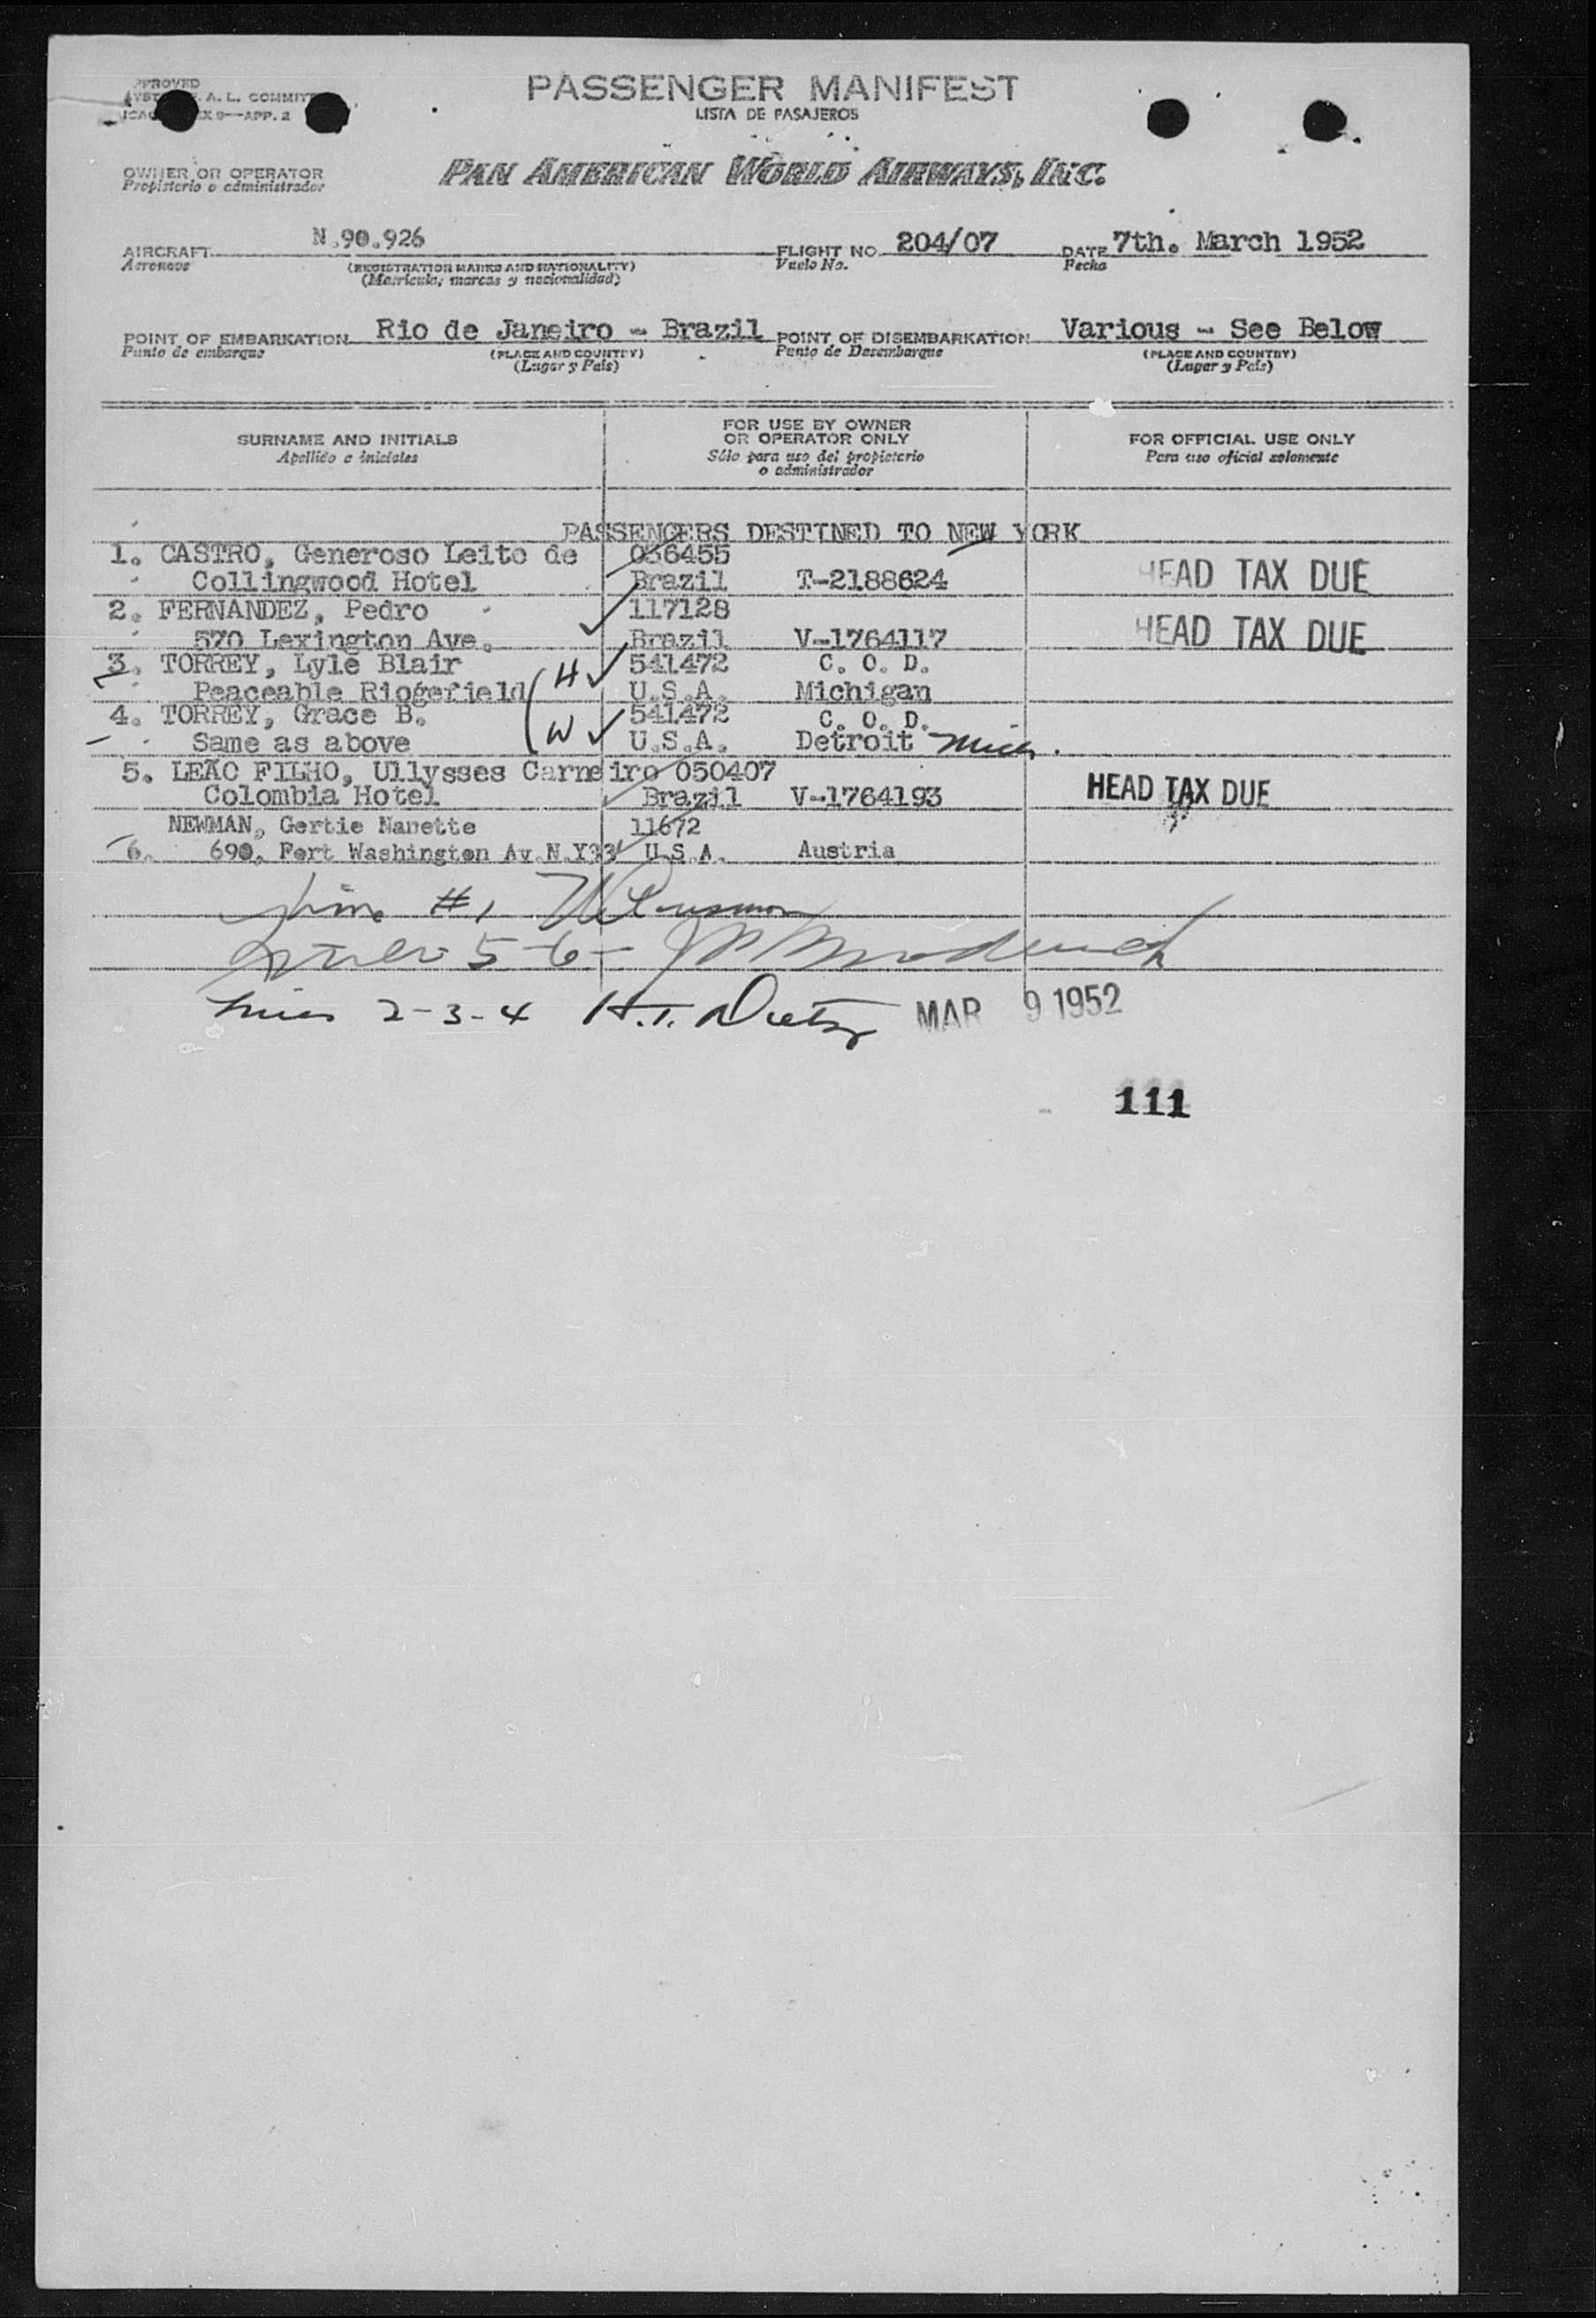 PASSENGER MANIFEST
LISTA DE PASAJEROS
A. L.
APP. 2
OWNER OR OPERATOR
Propietario o administrador
PAN AMERICAN WORLD AIRWAYS, INC.
AIRCRAFT N.90.926 FLIGHT NO. 204/07 DATE 7th. March 1952
Aeronave (REGISTRATION MARKS AND NATIONALITY) Vuelo No. Fecha
(Matrícula, marcas y nacionalidad)
POINT OF EMBARKATION Rio de Janeiro - Brazil POINT OF DISEMBARKATION Various - See Below
Punto de embarque (PLACE AND COUNTRY) Punto de Desembarque (PLACE AND COUNTRY)
(Lugar y País) (Lugar y País)
SURNAME AND INITIALS FOR USE BY OWNER OR OPERATOR ONLY FOR OFFICIAL USE ONLY
Apellido e iniciales Sólo para uso del propietario o administrador Para uso oficial solamente
PASSENGERS DESTINED TO NEW YORK
1. CASTRO, Generoso Leite de 036455
Collingwood Hotel Brazil T-2188624 HEAD TAX DUE
2. FERNANDEZ, Pedro 117128
570 Lexington Ave. Brazil V-1764117 HEAD TAX DUE
3. TORREY, Lyle Blair H 541472 C. O. D.
Peaceable Ridgefield U.S.A. Michigan
4. TORREY, Grace B. W 541472 C. O. D.
Same as above U.S.A. Detroit Mich.
5. LEÃO FILHO, Ullysses Carneiro 050407
Colombia Hotel Brazil V-1764193 HEAD TAX DUE
NEWMAN, Gertie Nanette 11672
6. 690, Fort Washington Av.N.Y33 U.S.A. Austria
Line #1
Lines 5-6-
Lines 2-3-4 H.T. MAR 9 1952
111